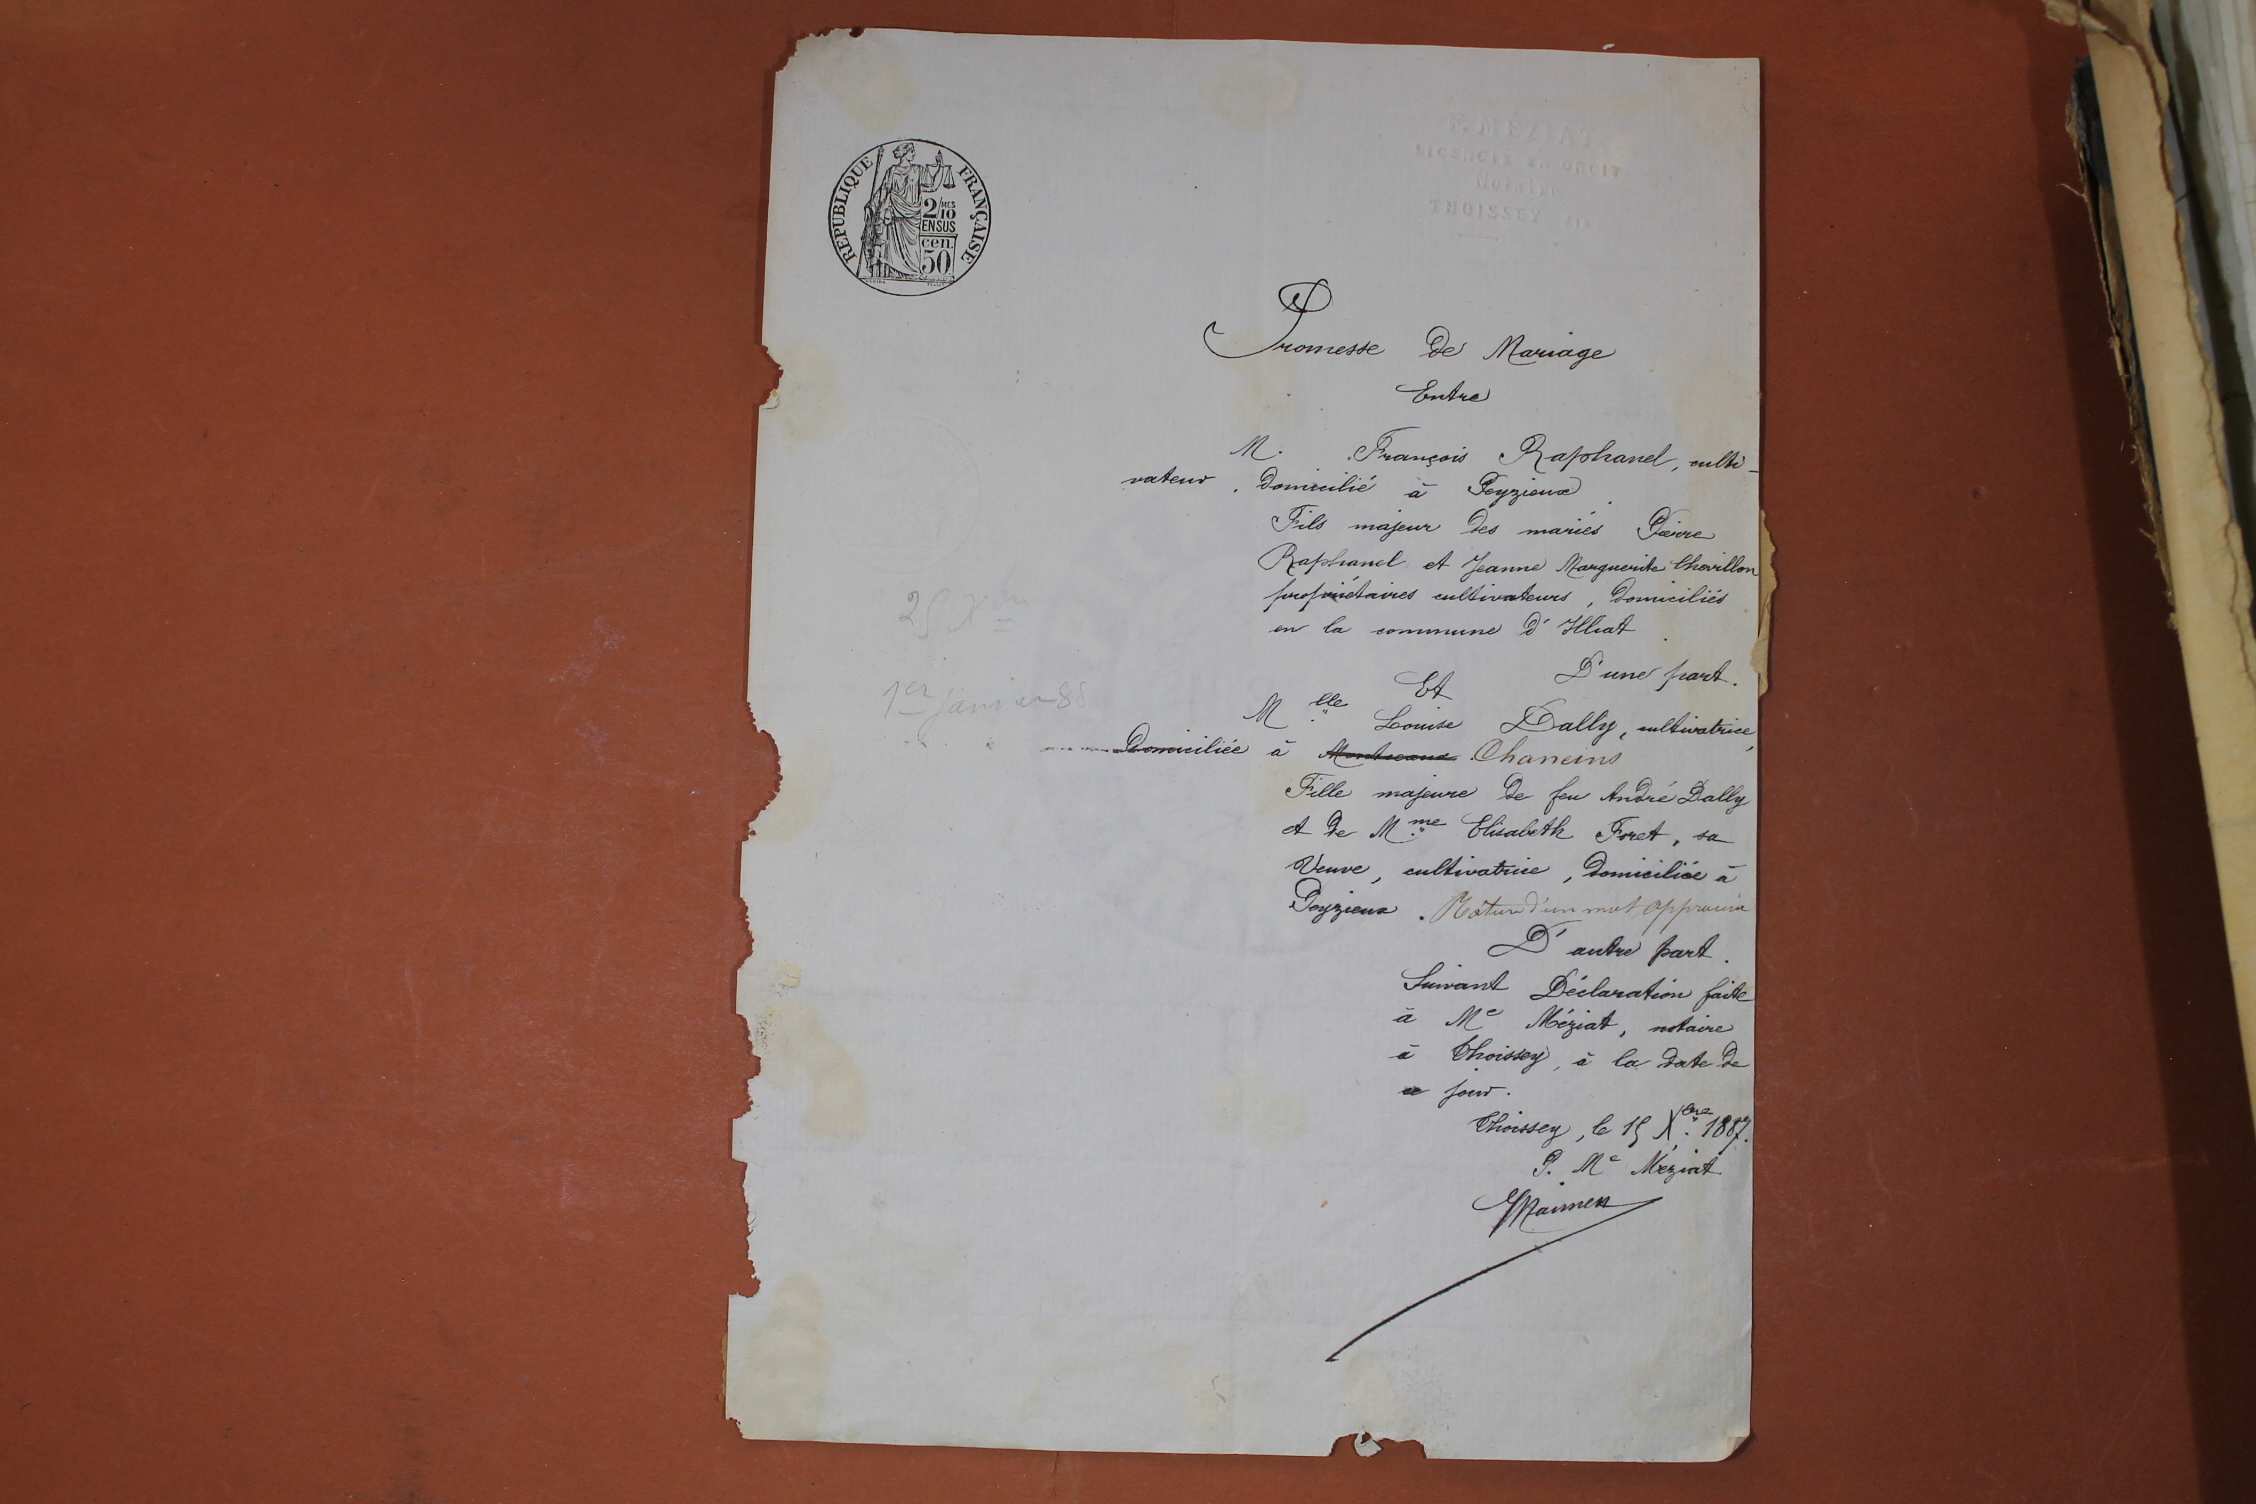 RÉPUBLIQUE FRANÇAISE
2/10 MES
EN SUS
cen.
50
MÉZIAT
LICENCIÉ EN DROIT
NOTAIRE
THOISSEY
Promesse de Mariage
Entre
M. François Raphanel, culti-
vateur, domicilié à Peyzieux
Fils majeur des mariés Pierre
Raphanel et Jeanne Marguerite Chovillon
propriétaires cultivateurs, domiciliés
en la commune d'Illiat
D'une part.
Et
Mlle Louise Dally, cultivatrice,
Domiciliée à Montceaux Chaneins
Fille majeure de feu André Dally
et de Mme Elisabeth Foret, sa
Veuve, cultivatrice, domiciliée à
Peyzieux. Rature d'un mot approuvé
D'autre part.
Suivant Déclaration faite
à Me Méziat, notaire
à Thoissey, à la date de
ce jour.
Thoissey, le 15 Xbre 1887.
P. Me Méziat
25 Xbre
1er janvier 88